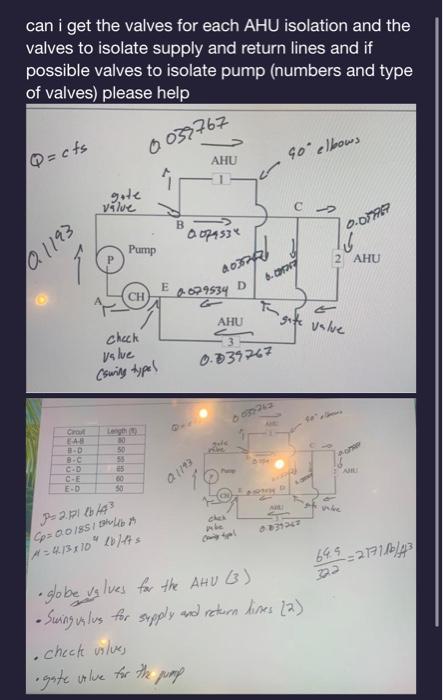 can i get the valves for each AHU isolation and the
valves to isolate supply and return lines and if
possible valves to isolate pump (numbers and type
of valves) please help
Q = cfs
0.039767
AHU
90° elbows
1
gate
valve
B
C
0.1193
Pump
P
2 AHU
A
CH
E 0.079534 D
AHU
gate valve
3
check
valve
(swing type)
0.039767
Circuit Length (ft)
E-A-B 80
B-D 50
B-C 55
C-D 65
C-E 60
E-D 50
0.1193
AHU
Pump
CH
AHU
69.9
32.2
= 2.171 lb/ft³
• globe valves for the AHU (3)
• Swing valus for supply and return lines (2)
• check valves
• gate valve for the pump